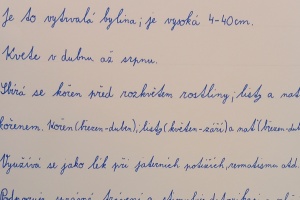 Je to vytrvalá bylina; je vysoká 4-40cm.
Kvete v dubnu až srpnu.
Sbírá se kořen před rozkvětem rostliny; listy a nať
kořenem. Kořen (březen-duben), listy (květen-září) a nať (březen-dub
Využívá se jako lék při jaterních potížích, rematismu atd.
Podporuje